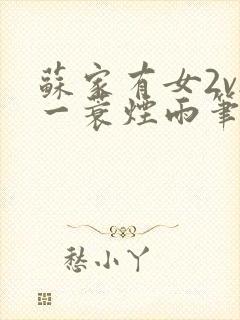 蘇家有女2v
一蓑煙雨筆
愁小丫